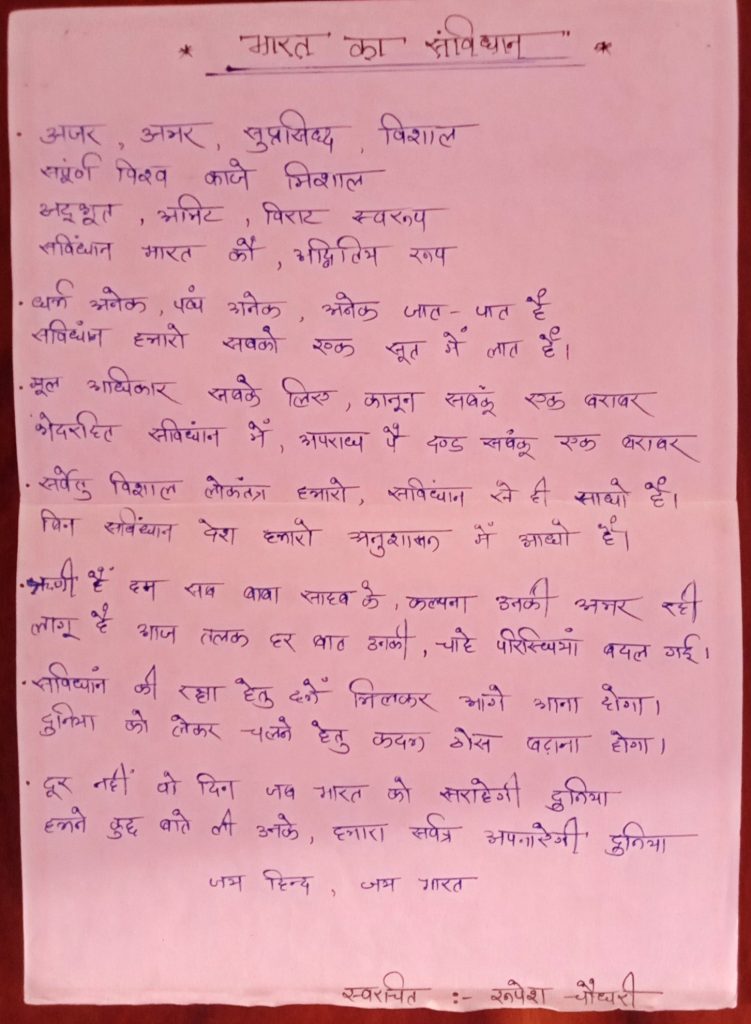 * भारत का संविधान" *
• अजर, अमर, सुप्रसिध्द, विशाल
संपूर्ण विश्व काजे मिशाल
अद्भूत, अमिट, विराट स्वरूप
सविंधान भारत कौ, अद्वितिय रूप
• धर्म अनेक, पंथ अनेक, अनेक जात-पात है
सविधांन हमारो सबको एक सूत में लात है।
• मूल अधिकार सबके लिए, कानून सबकूं एक बराबर
भेदरहित सविंधान में, अपराध पै दण्ड सबकूं एक बराबर
• विशाल लोकतंत्र हमारो, सविंधान से ही साधो है।
बिन सविंधान देश हमारो अनुशासन में आधो है।
• ऋणी हैं हम सब बाबा साहब के, कल्पना उनकी अमर रही
लागू है आज तलक हर बात उनकी, चाहे परिस्थियां बदल गई।
• सविधांन की रक्षा हेतु हमें मिलकर आगे आना होगा।
दुनिया को लेकर चलने हेतु कदम ठोस बढ़ाना होगा।
• दूर नहीं वो दिन जब भारत को सराहेगी दुनिया
हमने कुछ बाते ली उनके, हमारा सर्वत्र अपनाऐगी दुनिया
जय हिन्द, जय भारत
स्वरचित :- रूपेश चौधरी